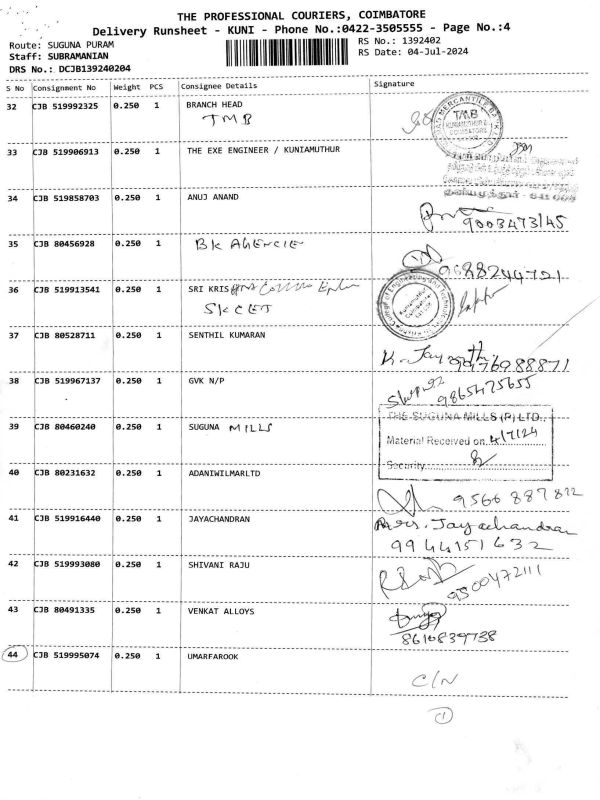 THE PROFESSIONAL COURIERS, COIMBATORE
Delivery Runsheet - KUNI - Phone No.:0422-3505555 - Page No.:4
Route: SUGUNA PURAM
RS No.: 1392402
Staff: SUBRAMANIAN
RS Date: 04-Jul-2024
DRS No.: DCJB139240204
S No Consignment No Weight PCS Consignee Details Signature
32 CJB 519992325 0.250 1 BRANCH HEAD
TMB
TMB
33 CJB 519906913 0.250 1 THE EXE ENGINEER / KUNIAMUTHUR
34 CJB 519858703 0.250 1 ANUJ ANAND
9003473145
35 CJB 80456928 0.250 1 BK AGENCIE
9688244721
36 CJB 519913541 0.250 1 SRI KRIS
SKCET
37 CJB 80528711 0.250 1 SENTHIL KUMARAN
K. Jayanthi
9976988871
38 CJB 519967137 0.250 1 GVK N/P
9865475655
39 CJB 80460240 0.250 1 SUGUNA MILLS
THE SUGUNA MILLS (P) LTD.,
Material Received on 4/7/24
Security
40 CJB 80231632 0.250 1 ADANIWILMARLTD
9566887822
41 CJB 519916440 0.250 1 JAYACHANDRAN
Mrs. Jayachandran
9944151632
42 CJB 519993080 0.250 1 SHIVANI RAJU
9500472111
43 CJB 80491335 0.250 1 VENKAT ALLOYS
8610839738
44 CJB 519995074 0.250 1 UMARFAROOK
C/N
1